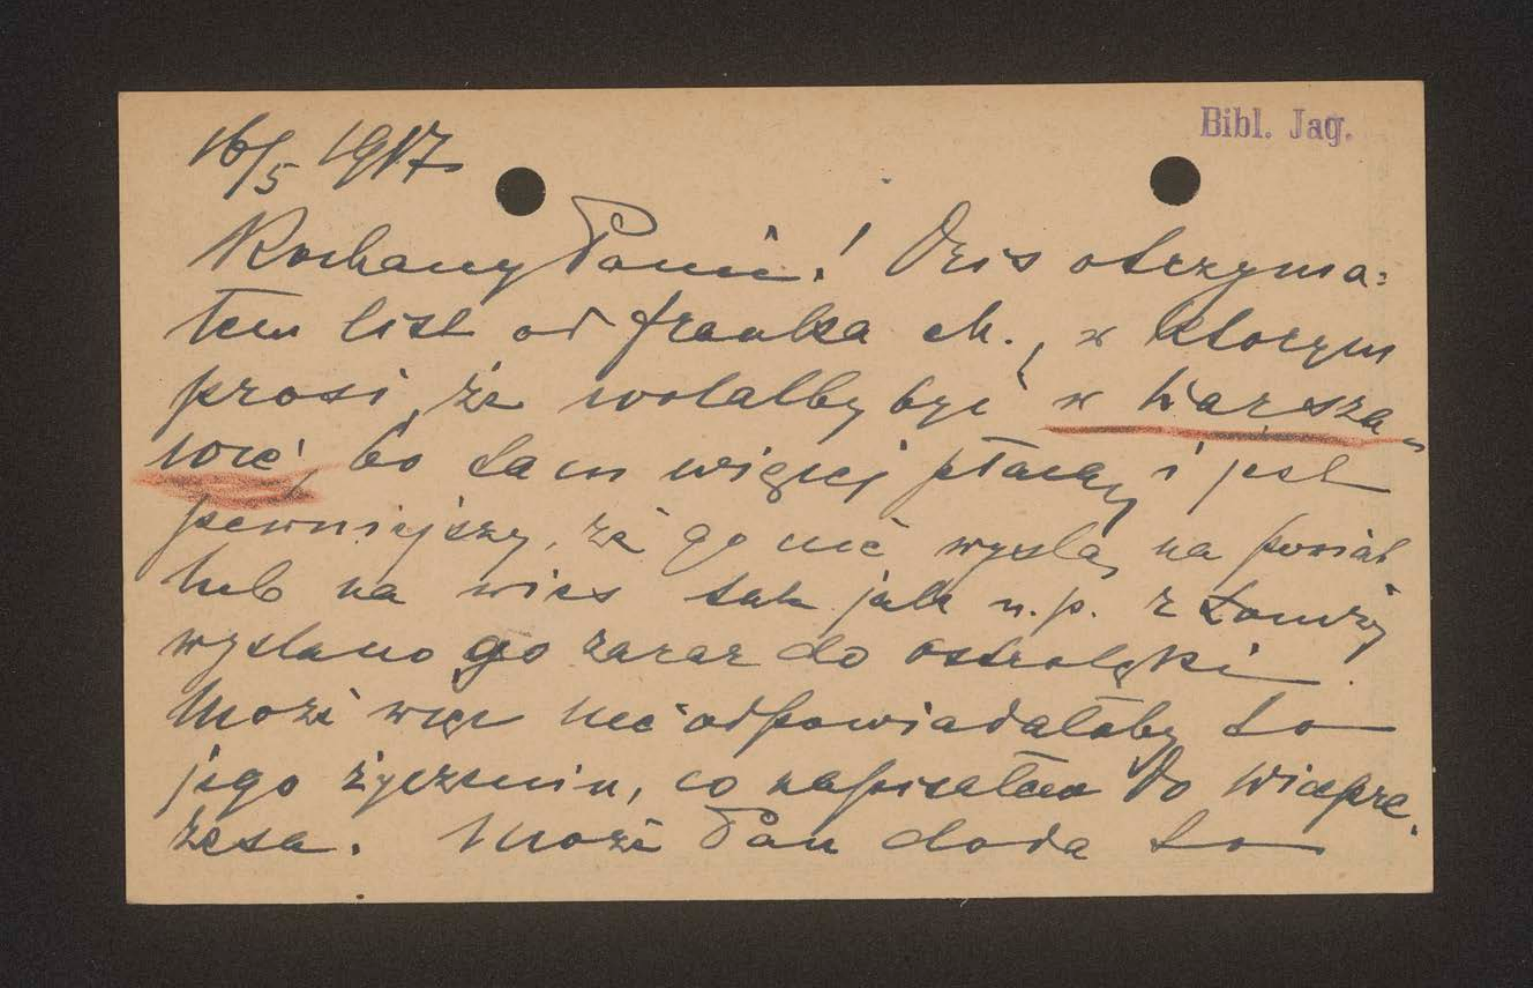 Bibl. Jag.
16/5 1917
Kochany Panie! Dzis otrzyma=
łem list od franka ch., w ktorym
prosi, że wolalby być w Warsza
wie, bo tam więcej płacą i jest
pewniejszy, że go nie wyslą na powiat
lub na wies tak jak n.p. z Łomży
wyslano go zaraz do ostrolęki.
Może więc nie odpowiadałoby to
jego życzeniu, co napisałem do wicepre.
zesa. Może Pan doda to